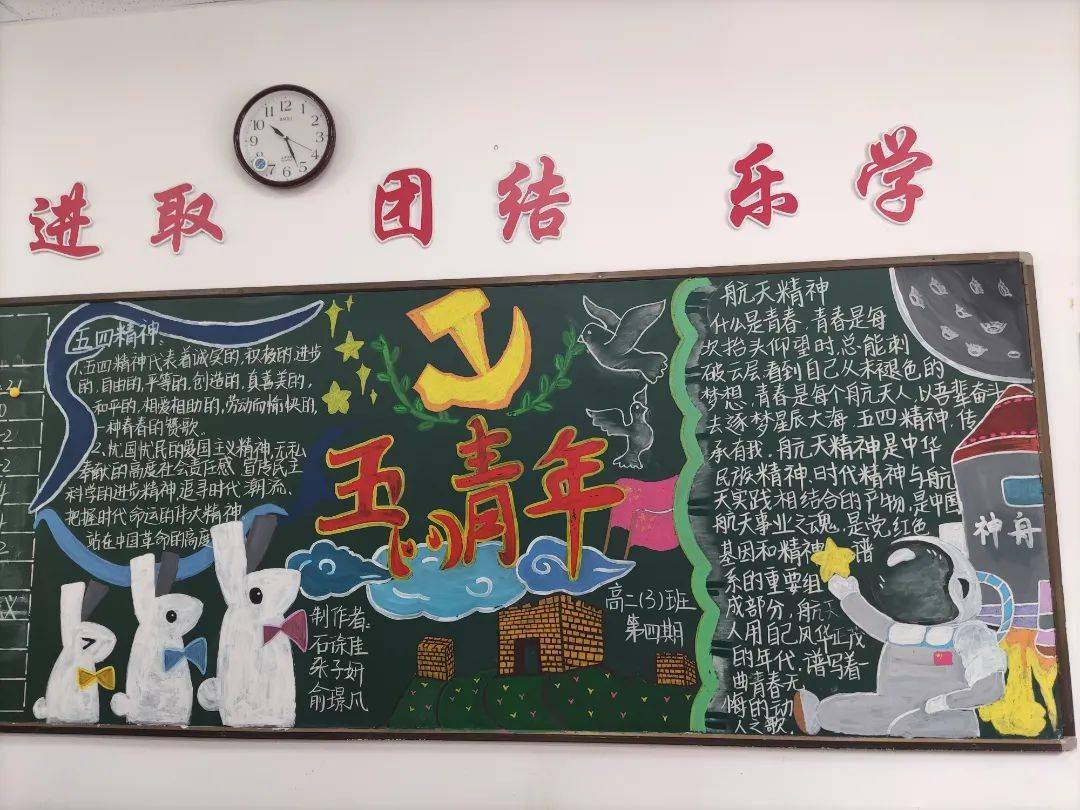 进取 团结 乐学
12
1
2
3
4
5
6
7
8
9
10
11
五四精神:
1、五四精神代表着诚实的,积极的,进步
的,自由的,平等的,创造的,真善美的,
和平的,相爱相助的,劳动而愉快的,
一种青春的赞歌.
2、忧国忧民的爱国主义精神,无私
奉献的高度社会责任感,宣传民主
科学的进步精神,追寻时代潮流、
把握时代命运的伟大精神
站在中国革命的高度
五四青年
制作者:
石涂佳
张子妍
俞璟凡
高二(3)班
第四期
航天精神
什么是青春,青春是每
次抬头仰望时,总能刺
破云层看到自己从未褪色的
梦想,青春是每个航天人,以吾辈奋斗
去逐梦星辰大海.五四精神,传
承有我.航天精神是中华
民族精神、时代精神与航
天实践相结合的产物,是中国
航天事业之魂,是党红色
基因和精神 谱
系的重要组
成部分,航天
人用自己风华正茂
的年代,谱写着
曲青春无
悔的动
人之歌.
神舟